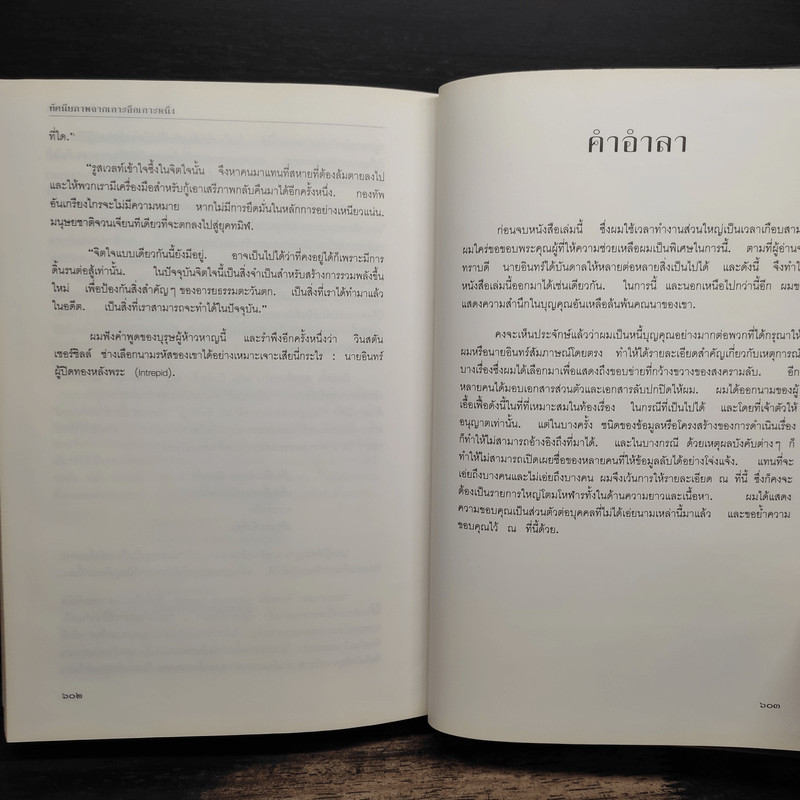 ทัศนียภาพจากเกาะอีกเกาะหนึ่ง
ที่ใด."
"รูสเวลท์เข้าใจซึ้งในจิตใจนั้น จึงหาคนมาแทนที่สหายที่ต้องล้มตายลงไป
และให้พวกเรามีเครื่องมือสำหรับกู้เอาเสรีภาพกลับคืนมาได้อีกครั้งหนึ่ง. กองทัพ
อันเกรียงไกรจะไม่มีความหมาย หากไม่มีการยึดมั่นในหลักการอย่างเหนียวแน่น.
มนุษยชาติจวนเจียนทีเดียวที่จะตกลงไปสู่ยุคทมิฬ.
"จิตใจแบบเดียวกันนี้ยังมีอยู่. อาจเป็นไปได้ว่าที่คงอยู่ได้ก็เพราะมีการ
ดิ้นรนต่อสู้เท่านั้น. ในปัจจุบันจิตใจนี้เป็นสิ่งจำเป็นสำหรับสร้างการรวมพลังขึ้น
ใหม่ เพื่อป้องกันสิ่งสำคัญๆ ของอารยธรรมตะวันตก. เป็นสิ่งที่เราได้ทำมาแล้ว
ในอดีต. เป็นสิ่งที่เราสามารถจะทำได้ในปัจจุบัน."
ผมฟังคำพูดของบุรุษผู้ห้าวหาญนี้ และรำพึงอีกครั้งหนึ่งว่า วินสตัน
เชอร์ชิลล์ ช่างเลือกนามรหัสของเขาได้อย่างเหมาะเจาะเสียนี่กระไร : นายอินทร์
ผู้ปิดทองหลังพระ (Intrepid).
๖๐๒
คำอำลา
ก่อนจบหนังสือเล่มนี้ ซึ่งผมใช้เวลาทำงานส่วนใหญ่เป็นเวลาเกือบสาม
ผมใคร่ขอขอบพระคุณผู้ที่ให้ความช่วยเหลือผมเป็นพิเศษในการนี้. ตามที่ผู้อ่านจ
ทราบดี นายอินทร์ได้บันดาลให้หลายต่อหลายสิ่งเป็นไปได้ และดังนี้ จึงทำใ
หนังสือเล่มนี้ออกมาได้เช่นเดียวกัน. ในการนี้ และนอกเหนือไปกว่านี้อีก ผมข
แสดงความสำนึกในบุญคุณอันเหลือล้นพ้นคณนาของเขา.
คงจะเห็นประจักษ์แล้วว่าผมเป็นหนี้บุญคุณอย่างมากต่อพวกที่ได้กรุณาให้
ผมหรือนายอินทร์สัมภาษณ์โดยตรง ทำให้ได้รายละเอียดสำคัญเกี่ยวกับเหตุการณ์
บางเรื่องซึ่งผมได้เลือกมาเพื่อแสดงถึงขอบข่ายที่กว้างขวางของสงครามลับ. อีก
หลายคนได้มอบเอกสารส่วนตัวและเอกสารลับปกปิดให้ผม. ผมได้ออกนามของผู้
เอื้อเฟื้อดังนี้ในที่ที่เหมาะสมในท้องเรื่อง ในกรณีที่เป็นไปได้ และโดยที่เจ้าตัวให้
อนุญาตเท่านั้น. แต่ในบางครั้ง ชนิดของข้อมูลหรือโครงสร้างของการดำเนินเรื่อง
ก็ทำให้ไม่สามารถอ้างอิงถึงที่มาได้. และในบางกรณี ด้วยเหตุผลบังคับต่างๆ ก็
ทำให้ไม่สามารถเปิดเผยชื่อของหลายคนที่ให้ข้อมูลลับได้อย่างโจ่งแจ้ง. แทนที่จะ
เอ่ยถึงบางคนและไม่เอ่ยถึงบางคน ผมจึงเว้นการให้รายละเอียด ณ ที่นี้ ซึ่งก็คงจะ
ต้องเป็นรายการใหญ่โตมโหฬารทั้งในด้านความยาวและเนื้อหา. ผมได้แสดง
ความขอบคุณเป็นส่วนตัวต่อบุคคลที่ไม่ได้เอ่ยนามเหล่านี้มาแล้ว และขอย้ำความ
ขอบคุณไว้ ณ ที่นี้ด้วย.
๖๐๓